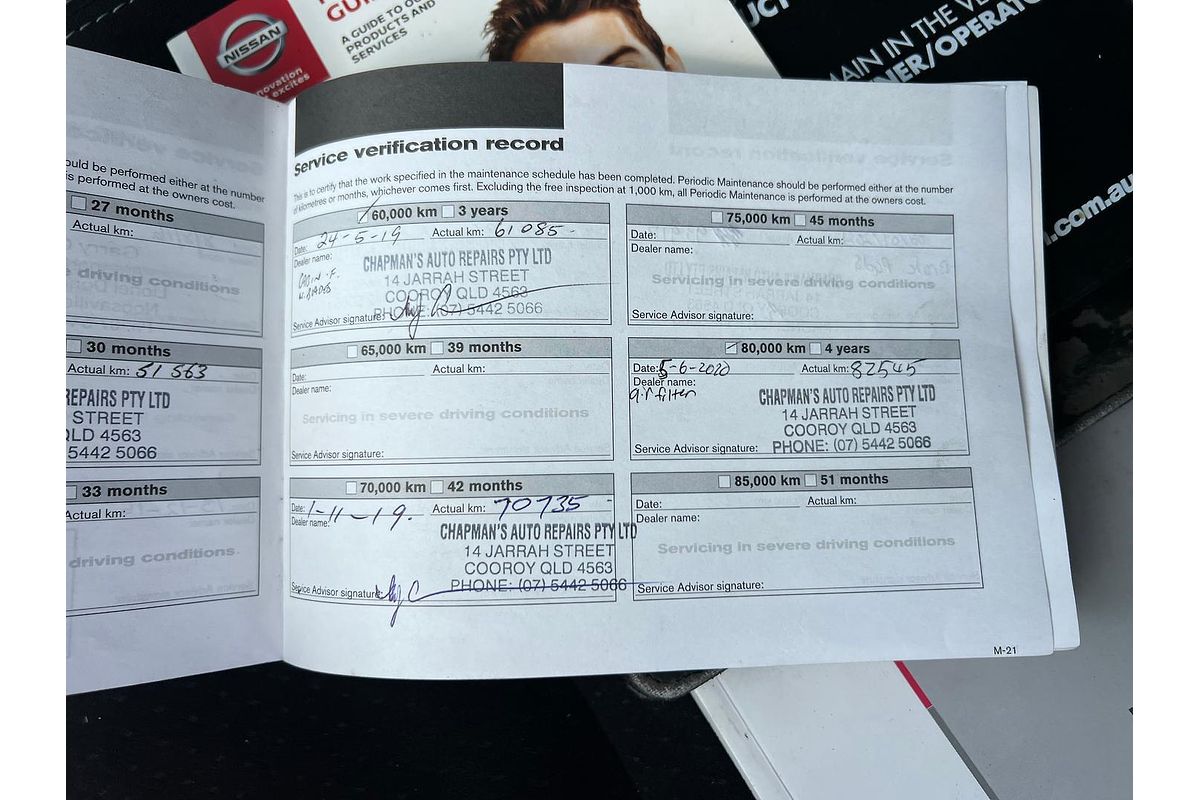 GUI
A GUIDE TO OU
PRODUCTS AND
SERVICES
NISSAN
novation
excites
UCT
MAIN IN THE VE
NER/OPERATOR
.com.au
ould be performed either at the number
is performed at the owners cost.
27 months
Actual km:
driving conditions
30 months
Actual km: 51 563
REPAIRS PTY LTD
STREET
QLD 4563
5442 5066
33 months
Actual km:
driving conditions
Service verification record
This is to certify that the work specified in the maintenance schedule has been completed. Periodic Maintenance should be performed either at the number
of kilometres or months, whichever comes first. Excluding the free inspection at 1,000 km, all Periodic Maintenance is performed at the owners cost.
60,000 km 3 years
Date: 24-5-19 Actual km: 61 085-
Dealer name:
CHAPMAN'S AUTO REPAIRS PTY LTD
14 JARRAH STREET
COOROY QLD 4563
PHONE: (07) 5442 5066
Service Advisor signature:
65,000 km 39 months
Date: Actual km:
Dealer name:
Servicing in severe driving conditions
Service Advisor signature:
70,000 km 42 months
Date: 1-11-19. Actual km: 70735-
Dealer name:
CHAPMAN'S AUTO REPAIRS PTY LTD
14 JARRAH STREET
COOROY QLD 4563
PHONE: (07) 5442 5066
Service Advisor signature:
75,000 km 45 months
Date: Actual km:
Dealer name:
Servicing in severe driving conditions
Service Advisor signature:
80,000 km 4 years
Date: 5-6-2020 Actual km: 82545
Dealer name:
air filter
CHAPMAN'S AUTO REPAIRS PTY LTD
14 JARRAH STREET
COOROY QLD 4563
PHONE: (07) 5442 5066
Service Advisor signature:
85,000 km 51 months
Date: Actual km:
Dealer name:
Servicing in severe driving conditions
Service Advisor signature:
M-21